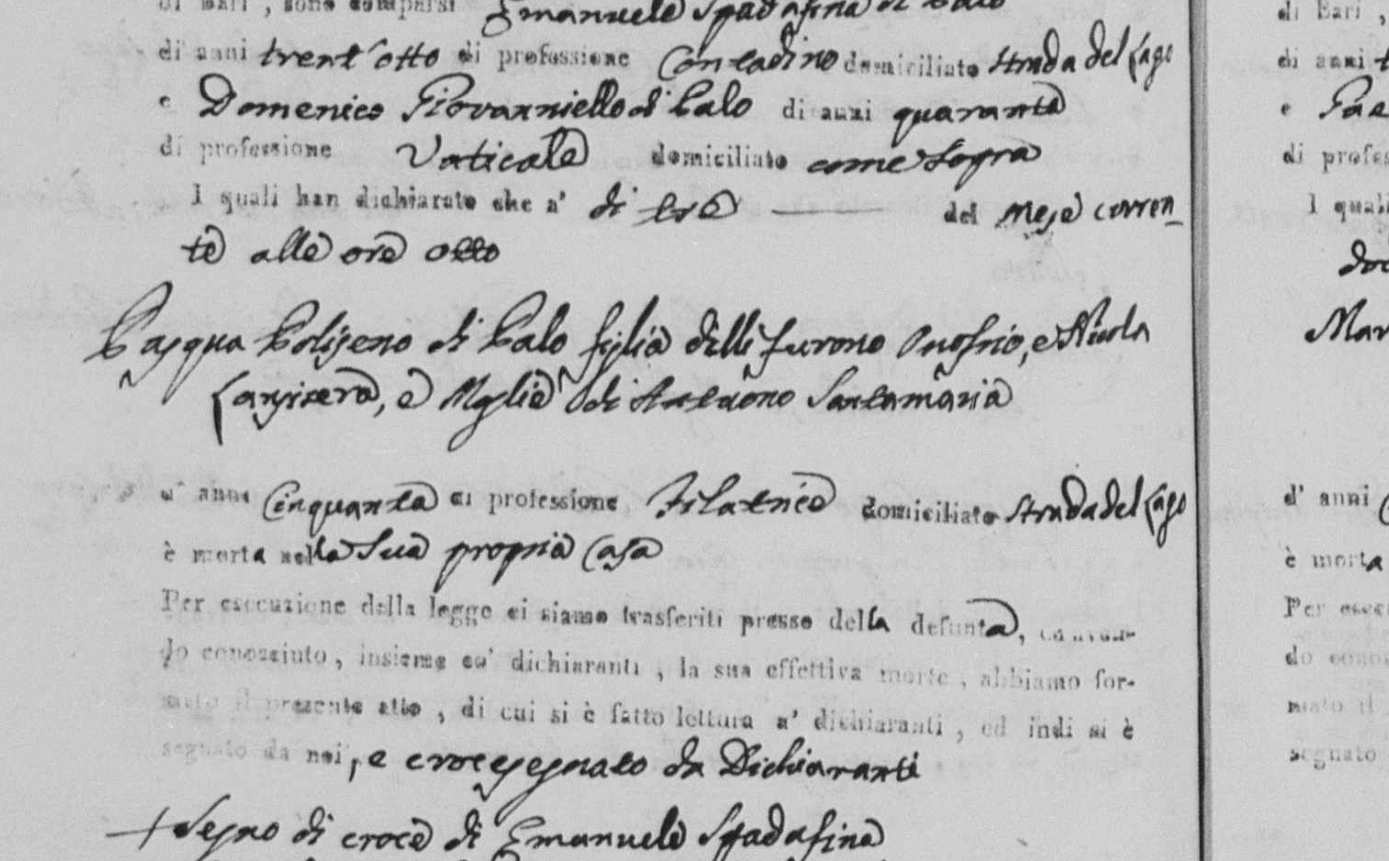 di Bari, sono comparsi Emanuele Spadafina di Palo
di anni trent'otto di professione Contadino domiciliato Strada del Lago
e Domenico Giovanniello di Palo di anni quaranta
di professione Vaticale domiciliato come sopra
I quali han dichiarato che a' di tre del Mese corren
te alle ore otto
Pasqua Poliseno di Palo figlia delli furono Onofrio, e Nicola
e Moglie di Antuono Santamaria
d' anni Cinquanta di professione Filatrice domiciliato Strada del Lago
è morta nella sua propria Casa
Per esecuzione della legge ci siamo trasferiti presso della defunta, ed aven-
do conosciuto, insieme co' dichiaranti, la sua effettiva morte, abbiamo for-
mato il presente atto, di cui si è fatto lettura a' dichiaranti, ed indi si è
segnato da noi, e crocesegnato da Dichiaranti
+ Segno di croce di Emanuele Spadafina
di Bari,
di anni
e
di profes
I quali
Mar
d' anni
è morta
Per esec
do cono
mato il
segnato